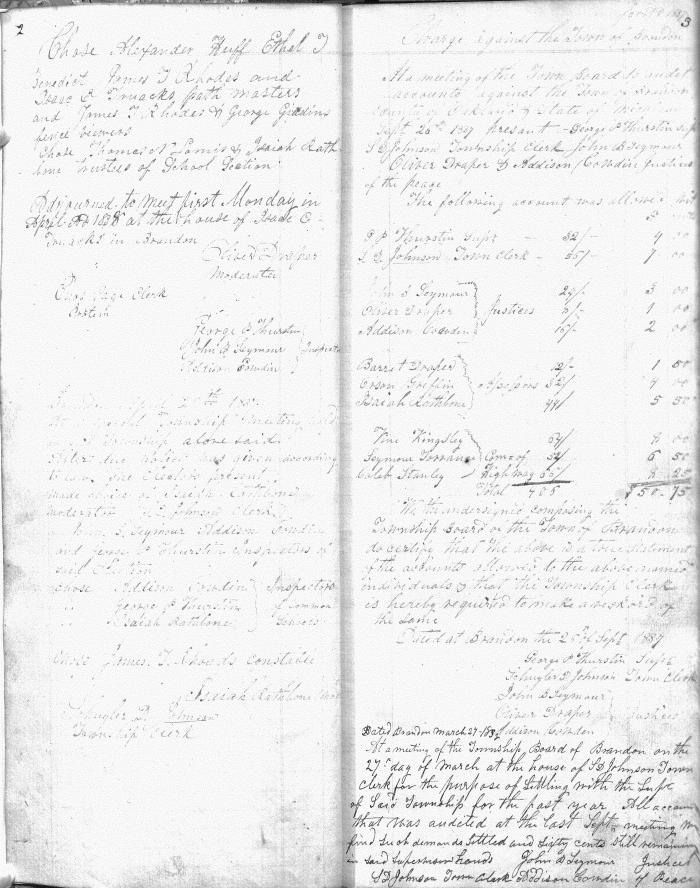 2
Chose Alexander Huff Ethel T
Benedict James T Rhodes and
Isaac C Truacks path masters
and James T. Rhodes & George Giddins
fence viewers
Chose Thomas N Loomis & Isaiah Rath
bone trustees of School Section
Adjourned to meet first Monday in
April AD 1838 at the house of Isaac C
Truacks in Brandon
Oliver Draper
Moderator
Page Clerk
George P Thurstin
John B Seymour
Addison Cowdin
Inspectors
April
At a special Township meeting held
in Township above said
After due notice was given according
to law the Electors present
made choice of Isaiah Rathbone
moderator S. D. Johnson Clerk
S. Seymour Addison Cowdin
and George P Thurstin Inspectors of
said Election
chose Addison Cowdin
" George P Thurstin
" Isaiah Rathbone
Inspectors
of Common
Schools
Chose James. T. Rhoods constable
Isaiah Rathbone Mod
Schuyler D. Johnson
Township Clerk
3
Charge against the Town of Brandon
At a meeting of the Town Board to audit
accounts against the Town of Brandon
County of Oakland & State of Michigan
Sept 26th 1837 present - George P Thurstin sup
S D Johnson Township Clerk John B Seymour
Oliver Draper & Addison Cowdin Justices
of the peace
The following account was allowed
G P Thurstin Supt - 32/- 4 00
S D Johnson Town Clerk - 56/- 7 00
John B Seymour 24/- 3 00
Oliver Draper Justices 8/- 1 00
Addison Cowden 16/- 2 00
Barret Draper 12/- 1 50
Orson Griffin assessors 32/ 4 00
Isaiah Rathbone 44/ 5 50
Vine Kingsley 64/ 8 00
Seymour Torrance Com of 52/ 6 50
Caleb Stanley Highway 66/ 8 25
Total 406 $50-75
We the undersigned composing the
Township Board of the Town of Brandon
do certify that the above is a true statement
of the accounts allowed to the above named
individuals & that the Township Clerk
is hereby required to make a reckord of
the same
Dated at Brandon the 26th Sept 1837
George P Thurstin Supt
Schuyler D Johnson Town Clerk
John B Seymour
Oliver Draper Justices
Addison Cowden
Dated Brandon March 27-1838
At a meeting of the Township Board of Brandon on the
27th day of March at the house of S D Johnson Town
Clerk for the purpose of Settling with the Supt
of Said Township for the past year All accoun
that was audited at the last Sept. meeting We
find Such demands Settled and Sixty cents Still remaining
in Said Supervisor hands John B Seymour Justices
S D Johnson Town Clerk Addison Cowdin of Peace